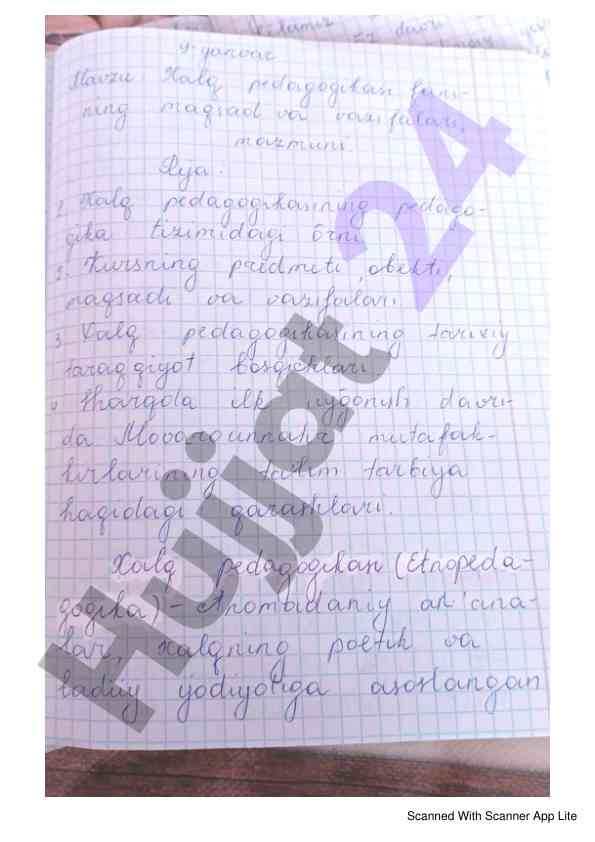 9-yanvar
Mavzu: Xalq pedagogikasi fani-
ning maqsad va vazifalari,
mazmuni.
Reja:
1. Xalq pedagogikasining pedago-
gika tizimidagi o'rni
2. Kursning predmeti, obekti,
maqsadi va vazifalari
3. Xalq pedagogikasining tarixiy
taraqqiyot bosqichlari
4. Sharqda ilk uyg'onish davri-
da Movaraunnahr mutafak-
kirlarining ta'lim tarbiya
haqidagi qarashlari.
Xalq pedagogikasi (Etnopeda-
gogika) - an'ana-
lar, xalqning poetik va
badiiy ijodiyotiga asoslangan
Hujjat 24
Scanned With Scanner App Lite